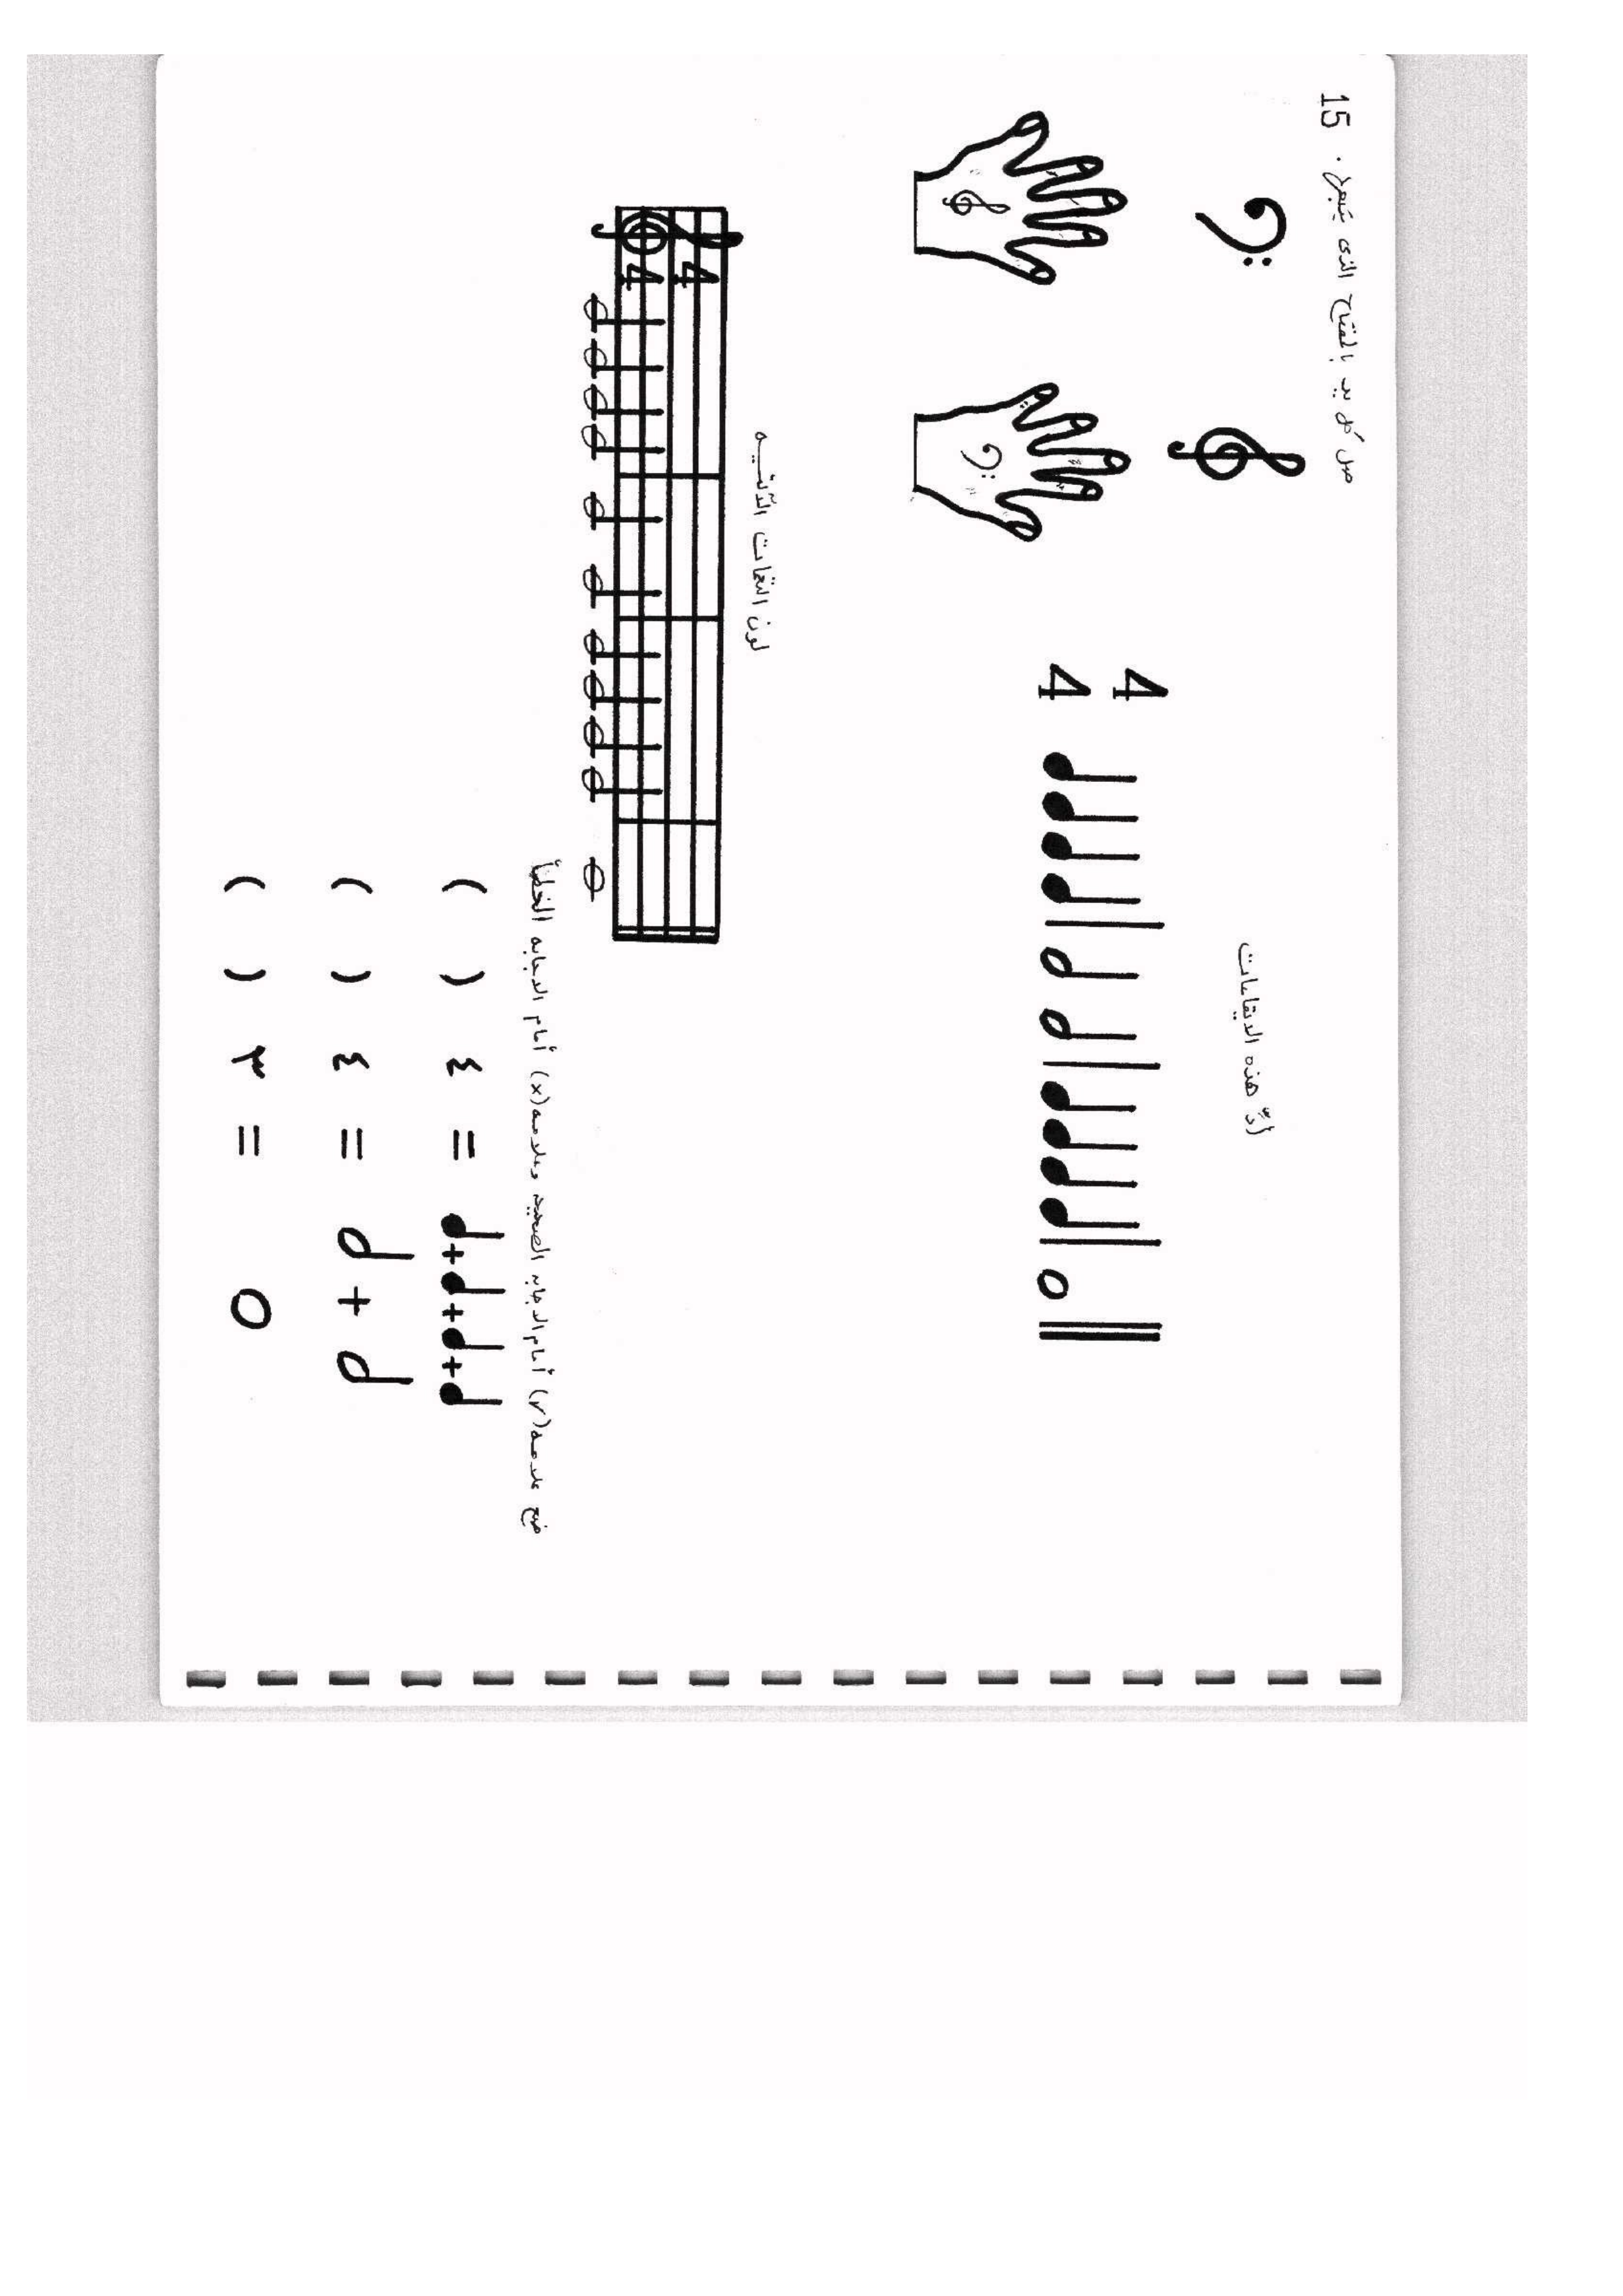 15 . صل كل يد بالمفتاح الذى يتبعها
أدِّ هذه الايقاعات
4
4
لون النغمات الآتـيـه
4
4
ضع علامـه (√) أمام الاجابه الصحيحه وعلامـه (x) أمام الاجابه الخطأ
+ + + = ٤ ( )
+ = ٤ ( )
= ٣ ( )